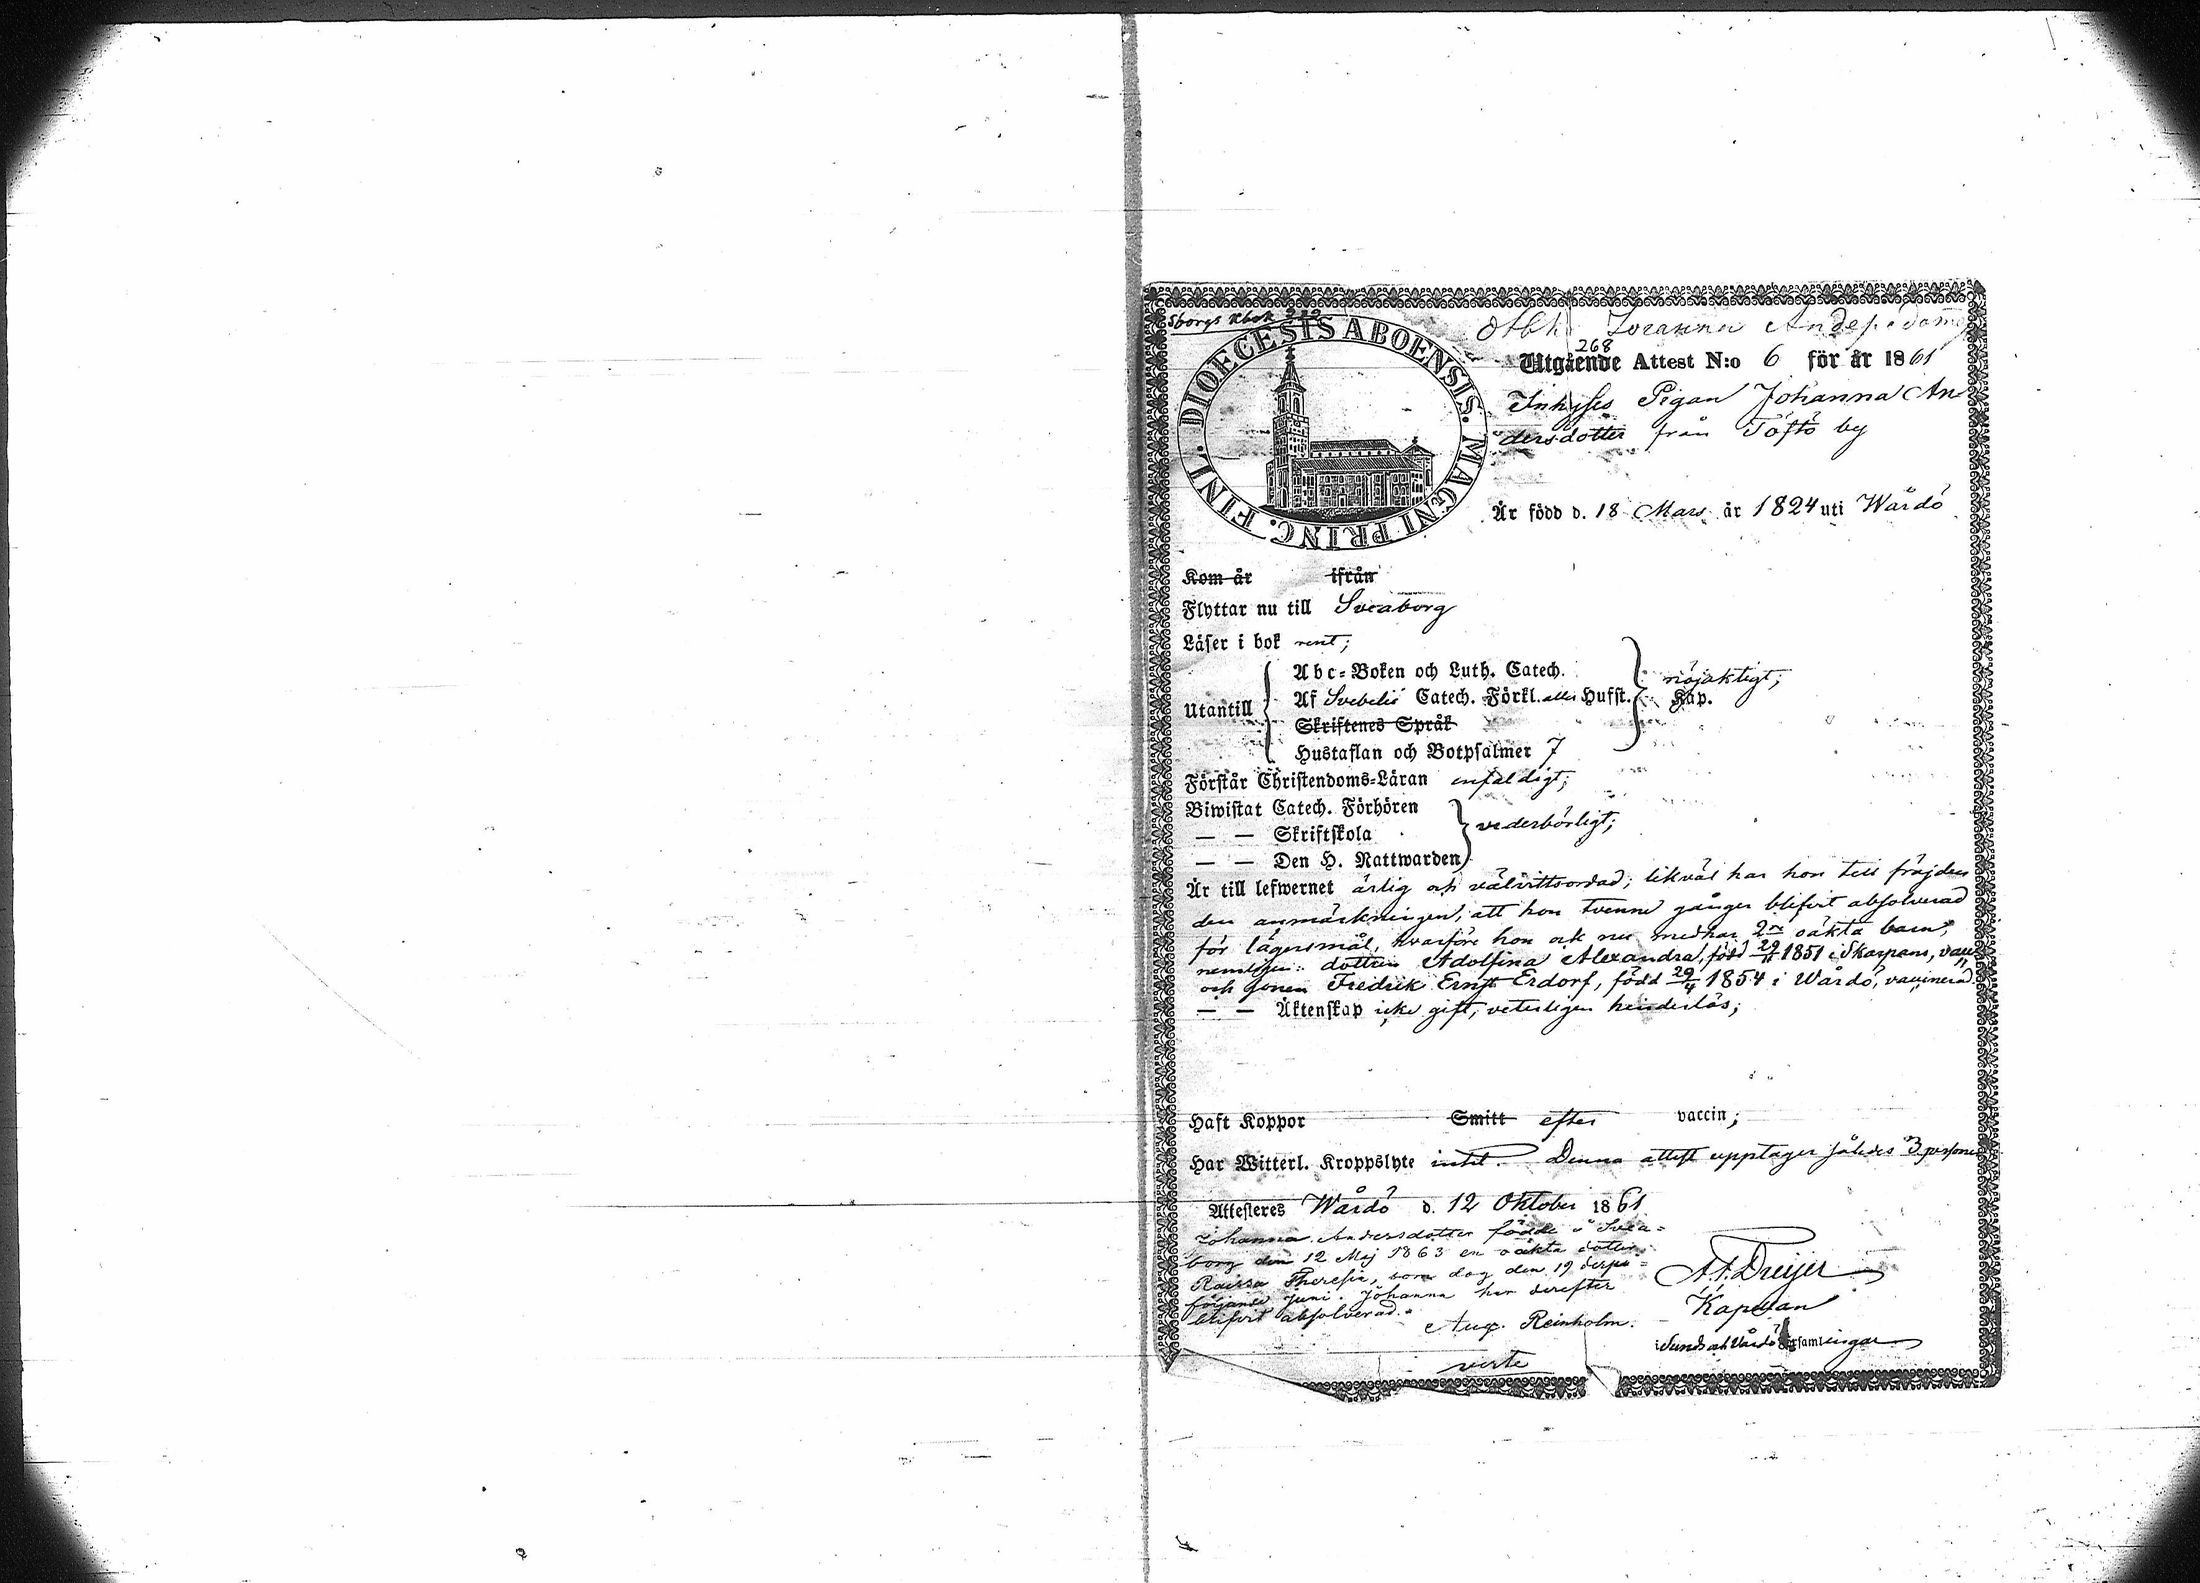 Sborgs Kbok 232
DIOECESIS ABOENSIS. MAGNI PRINC. FINL.
268
Utgående Attest N:o 6 för år 1861
Inhyses Pigan Johanna An
dersdotter från Töftö by
Är född d. 18 Mars år 1824 uti Wårdö
Kom år ifrån
Flyttar nu till Sveaborg
Läser i bok rent;
Utantill
Abc-Boken och Luth. Catech. nöjaktigt;
Af Svebelii Catech. Förkl. eller Hufst. Kap.
Skriftenes Språk
Hustaflan och Botpsalmer 7
Förstår Christendoms-Läran enfaldigt;
Biwistat Catech. Förhören
— — Skriftskola vederbörligt;
— — Den H. Nattwarden
Är till lefwernet ärlig och välvittsordad; likväl har hon till fräjden
den anmärkningen, att hon tvenne gånger blifvit absolverad
för lägersmål, hvarföre hon ock nu medhar 2ne oäkta barn,
nemligen: dottren Adolfina Alexandra, född 29/11 1851 i Skarpans, vacc.
och sonen Fredrik Ernst Erdorf, född 29/4 1854 i Wårdö, vaccinerad.
— — Äktenskap icke gift, veterligen hinderlös;
Haft Koppor Smitt efter vaccin;
Har Witterl. Kroppslyte intet. Denna attest upptager således 3 personer
Attesteres Wårdö d. 12 Oktober 1861
Johanna Andersdotter födde i Svea=
borg den 12 Maj 1863 en oäkta dotter
Raissa Theresia, som dog den 19 derpå=
följande Juni. Johanna har derefter
blifvit absolverad.
Aug. Reinholm.
A. A. Dreijer
Kapellan
i Sunds och Vårdö församlingar
verte